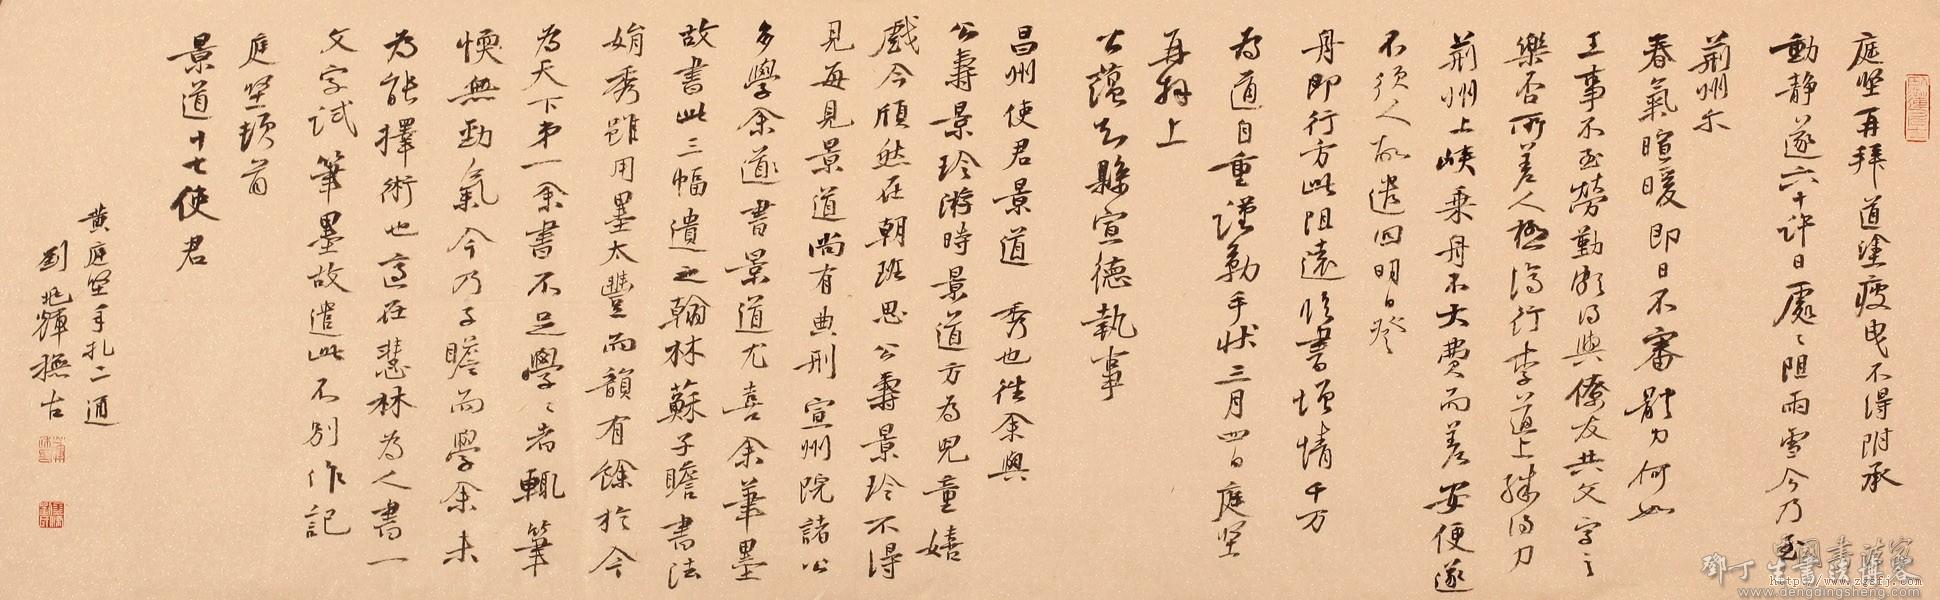 庭堅再拜道塗疲曳不得附承
動靜遂六十許日處〻阻雨雪今乃至
荊州尓
春氣暄暖即日不審體力何如
王事不至勞勤頗得與僚友共文字之
樂否所差人極濟行李道上殊得力
荊州上峽乗舟不大費而差安便遂
不須人故遣回明日發
舟即行方此阻遠臨書增情千万
為道自重謹勒手狀三月四日庭堅
再拜上
公蘊知縣宣德執事
昌州使君景道 秀也往余與
公壽景珍游時景道方為兒童嬉
戲今頎然在朝班思公壽景珍不得
見每見景道尚有典刑宣州院諸公
多學余書景道尤喜余筆墨
故書此三幅遺之翰林蘇子瞻書法
娟秀雖用墨太豐而韻有餘於今
為天下第一余書不足學〻者輒筆
愞無勁氣今乃子瞻而學余未
為能擇術也適在慧林為人書一
文字試筆墨故遣此不別作記
庭堅頓首
景道十七使君
黄庭堅手札二通
劉兆輝撫古
中國書法家
鄧丁生書法博客
http://www.zgsfj.com
www.dengdingsheng.com